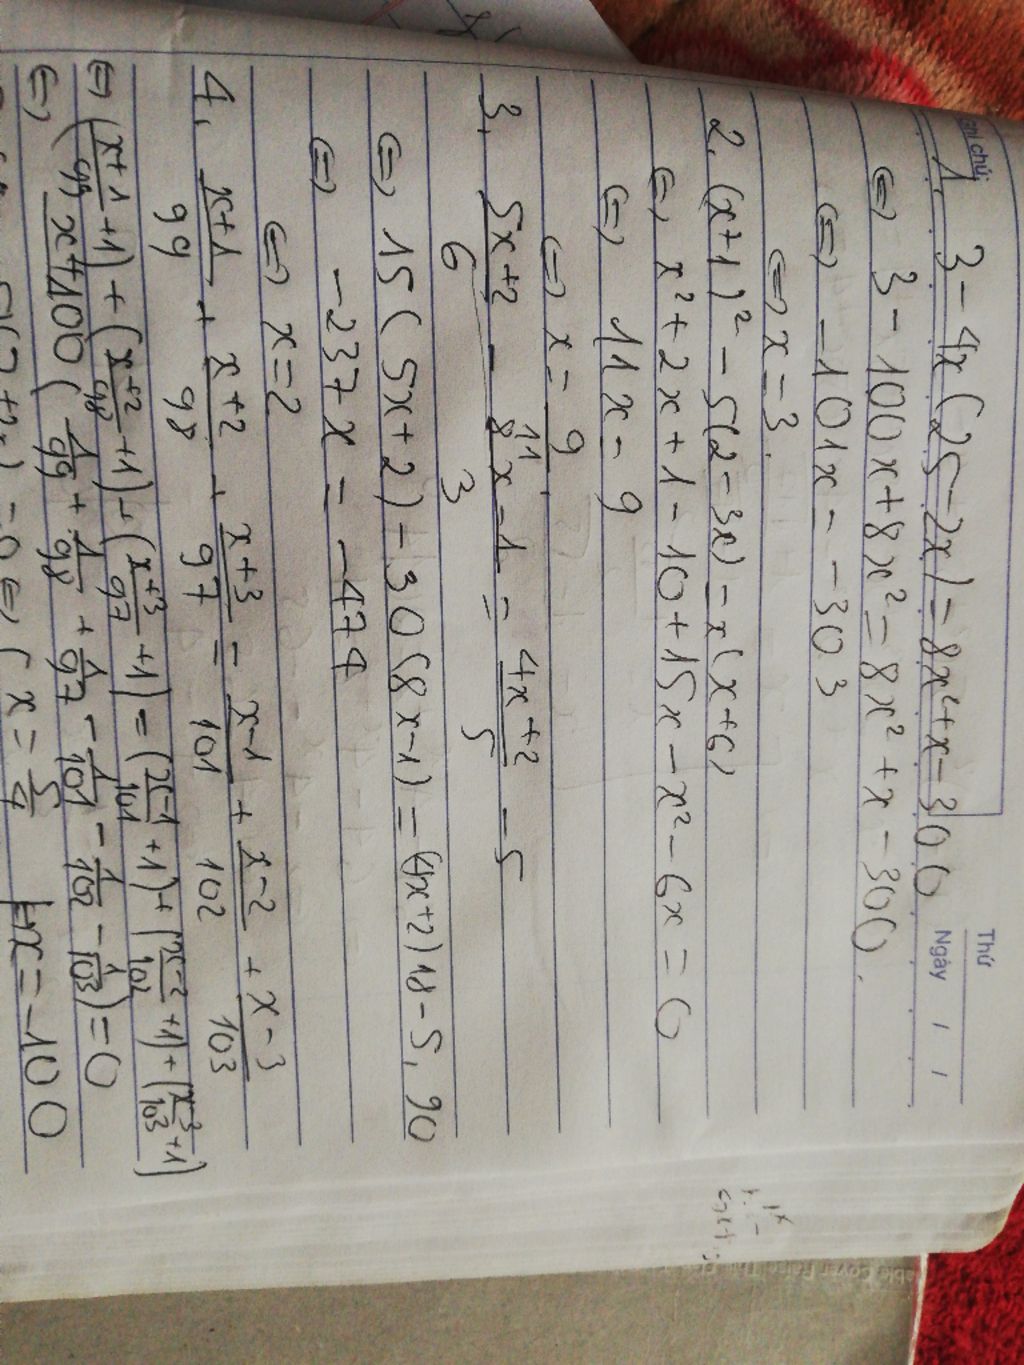 Ghi chú:
Thứ
Ngày / /
1, 3 - 4x(25 - 2x) = 8x² + x - 300
⇔ 3 - 100x + 8x² = 8x² + x - 300.
⇔ -101x = -303
⇔ x = 3.
2, (x+1)² - 5(2 - 3x) = x(x+6)
⇔ x² + 2x + 1 - 10 + 15x - x² - 6x = 0
⇔ 11x = 9
⇔ x = 9/11.
3, (5x+2)/6 - (8x-1)/3 = (4x+2)/5 - 5
⇔ 15(5x+2) - 30(8x-1) = (4x+2)18 - 5.90
⇔ -237x = -474
⇔ x = 2
4, (x+1)/99 + (x+2)/98 + (x+3)/97 = (x-1)/101 + (x-2)/102 + (x-3)/103
⇔ ((x+1)/99 + 1) + ((x+2)/98 + 1) + ((x+3)/97 + 1) = ((x-1)/101 + 1) + ((x-2)/102 + 1) + ((x-3)/103 + 1)
⇔ x+100 (1/99 + 1/98 + 1/97 - 1/101 - 1/102 - 1/103) = 0
x = -100